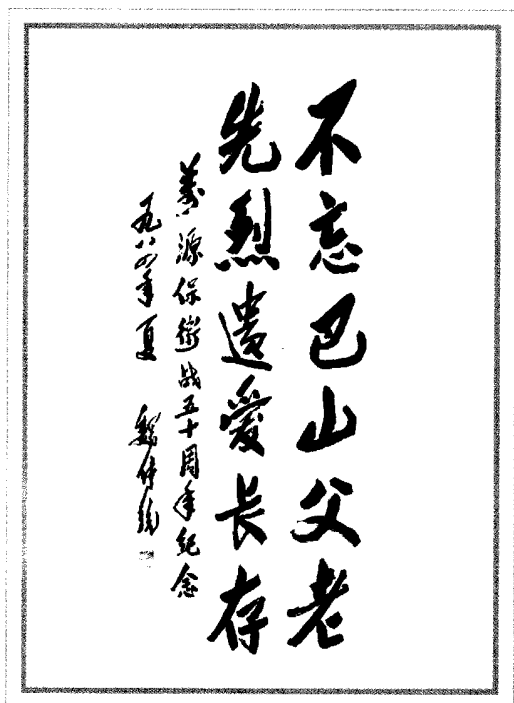 不忘巴山父老
先烈遗爱长存
万源保卫战五十周年纪念
一九八四年夏 魏传统